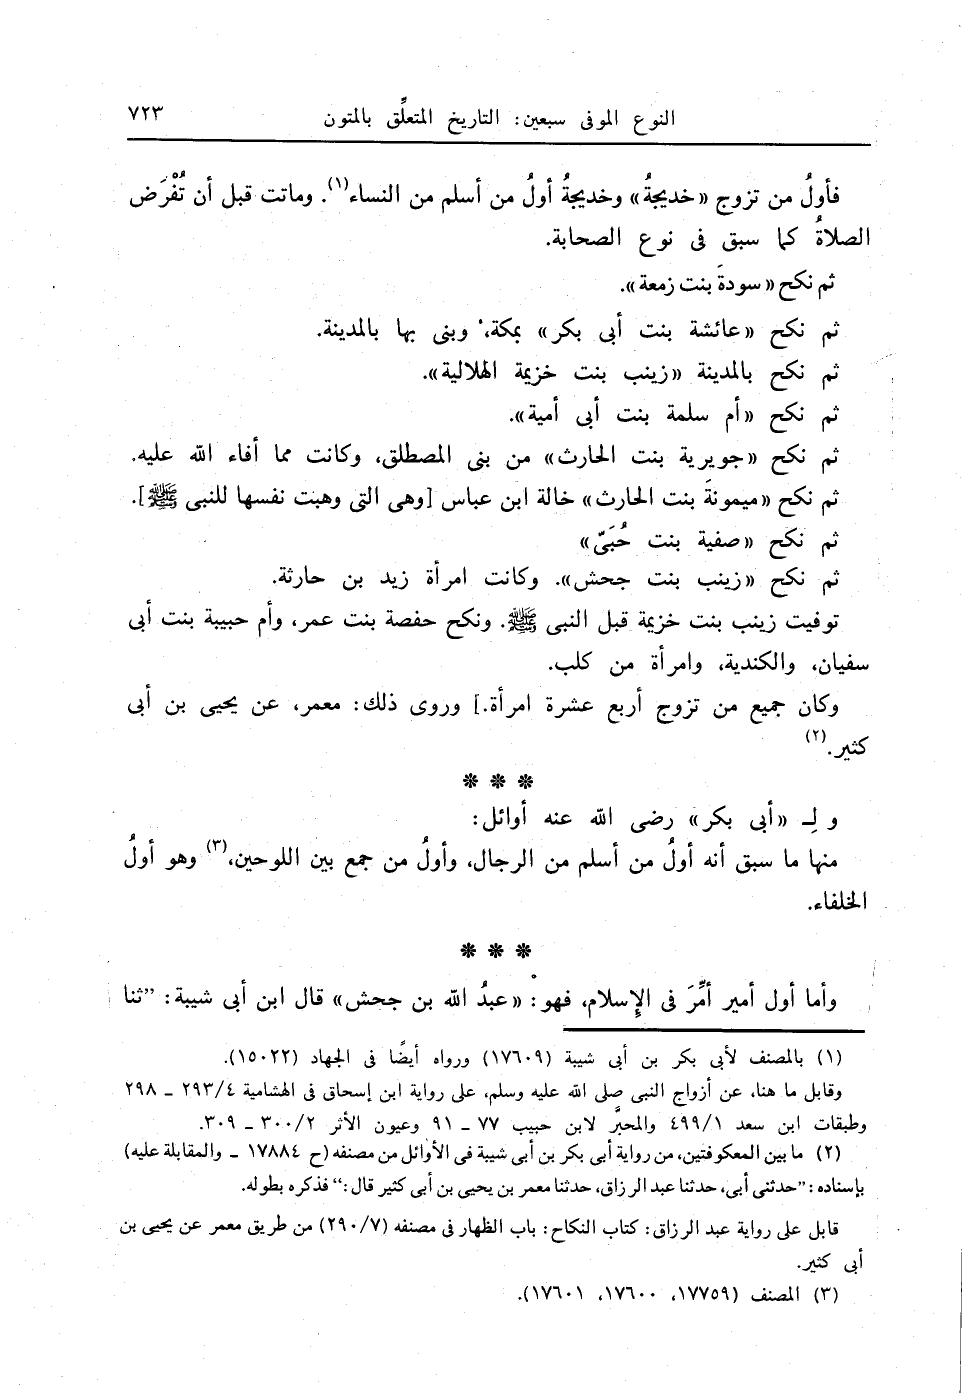 النوع الموفى سبعين: التاريخ المتعلِّق بالمتون ٧٢٣
فأولُ من تزوج «خديجةُ» وخديجةُ أولُ من أسلم من النساء(١). وماتت قبل أن تُفْرَض
الصلاةُ كما سبق فى نوع الصحابة.
ثم نكح «سودةَ بنت زمعة».
ثم نكح «عائشة بنت أبى بكر» بمكة، وبنى بها بالمدينة.
ثم نكح بالمدينة «زينب بنت خزيمة الهلالية».
ثم نكح «أم سلمة بنت أبى أمية».
ثم نكح «جويرية بنت الحارث» من بنى المصطلق، وكانت مما أفاء الله عليه.
ثم نكح «ميمونةَ بنت الحارث» خالة ابن عباس [وهى التى وهبت نفسها للنبى ﷺ].
ثم نكح «صفية بنت حُيَىّ»
ثم نكح «زينب بنت جحش». وكانت امرأة زيد بن حارثة.
توفيت زينب بنت خزيمة قبل النبى ﷺ. ونكح حفصة بنت عمر، وأم حبيبة بنت أبى
سفيان، والكندية، وامرأة من كلب.
وكان جميع من تزوج أربع عشرة امرأة.] وروى ذلك: معمر، عن يحيى بن أبى
كثير.(٢)
❊ ❊ ❊
و لِـ «أبى بكر» رضى الله عنه أوائل:
منها ما سبق أنه أولُ من أسلم من الرجال، وأولُ من جمع بين اللوحين،(٣) وهو أولُ
الخلفاء.
❊ ❊ ❊
وأما أول أمير أمِّرَ فى الإسلام، فهو: «عبدُ الله بن جحش» قال ابن أبى شيبة: ”ثنا
(١) بالمصنف لأبى بكر بن أبى شيبة (١٧٦٠٩) ورواه أيضًا فى الجهاد (١٥٠٢٢).
وقابل ما هنا، عن أزواج النبى صلى الله عليه وسلم، على رواية ابن إسحاق فى الهشامية ٢٩٣/٤ ـ ٢٩٨
وطبقات ابن سعد ٤٩٩/١ والمحبَّر لابن حبيب ٧٧ ـ ٩١ وعيون الأثر ٣٠٠/٢ ـ ٣٠٩.
(٢) ما بين المعكوفتين، من رواية أبى بكر بن أبى شيبة فى الأوائل من مصنفه (ح ١٧٨٨٤ ـ والمقابلة عليه)
بإسناده: ”حدثنى أبى، حدثنا عبد الرزاق، حدثنا معمر بن يحيى بن أبى كثير قال:“ فذكره بطوله.
قابل على رواية عبد الرزاق: كتاب النكاح: باب الظهار فى مصنفه (٢٩٠/٧) من طريق معمر عن يحيى بن
أبى كثير.
(٣) المصنف (١٧٧٥٩، ١٧٦٠٠، ١٧٦٠١).